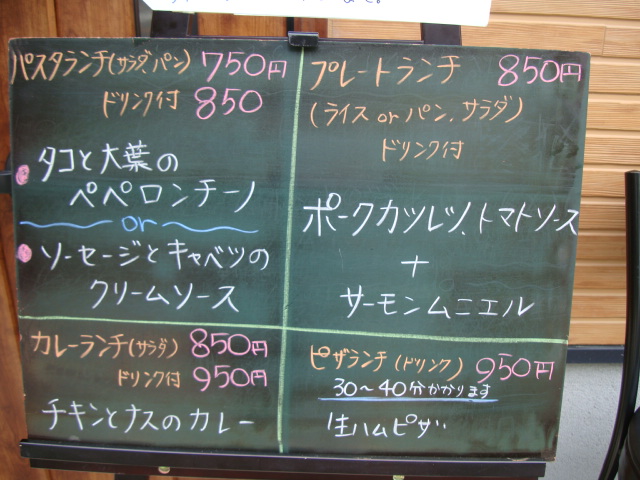 パスタランチ(サラダ、パン) 750円
ドリンク付 850
タコと大葉の
ペペロンチーノ
or
ソーセージとキャベツの
クリームソース
プレートランチ 850円
(ライス or パン、サラダ)
ドリンク付
ポークカツレツ、トマトソース
+
サーモンムニエル
カレーランチ(サラダ) 850円
ドリンク付 950円
チキンとナスのカレー
ピザランチ(ドリンク) 950円
30〜40分かかります
生ハムピザ